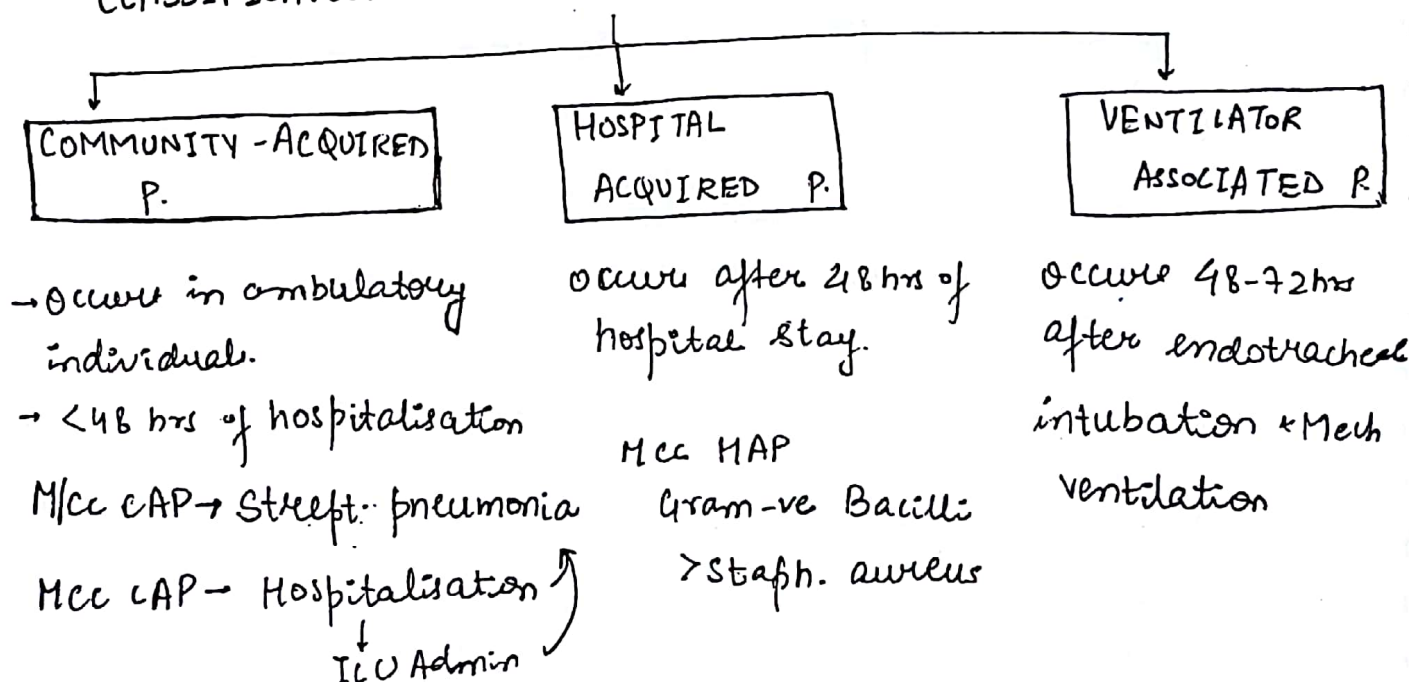 COMMUNITY-ACQUIRED
P.
→ Occurs in ambulatory
individual.
→ <48 hrs of hospitalisation
M/cc CAP → Strept. pneumonia
Mcc CAP - Hospitalisation
↓
ICU Admin
HOSPITAL
ACQUIRED P.
Occurs after 48 hrs of
hospital stay.
Mcc HAP
Gram-ve Bacilli
> Staph. aureus
VENTILATOR
ASSOCIATED P.
Occurs 48-72hrs
after endotracheal
intubation & Mech
ventilation